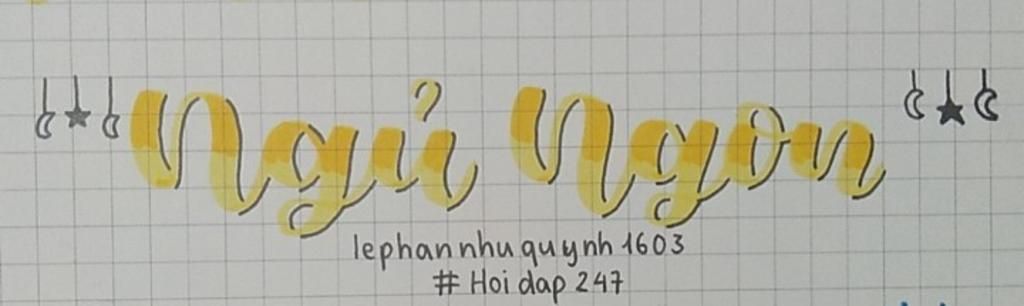 Ngủ Ngon
lephannhuquynh1603
# Hoi dap 247